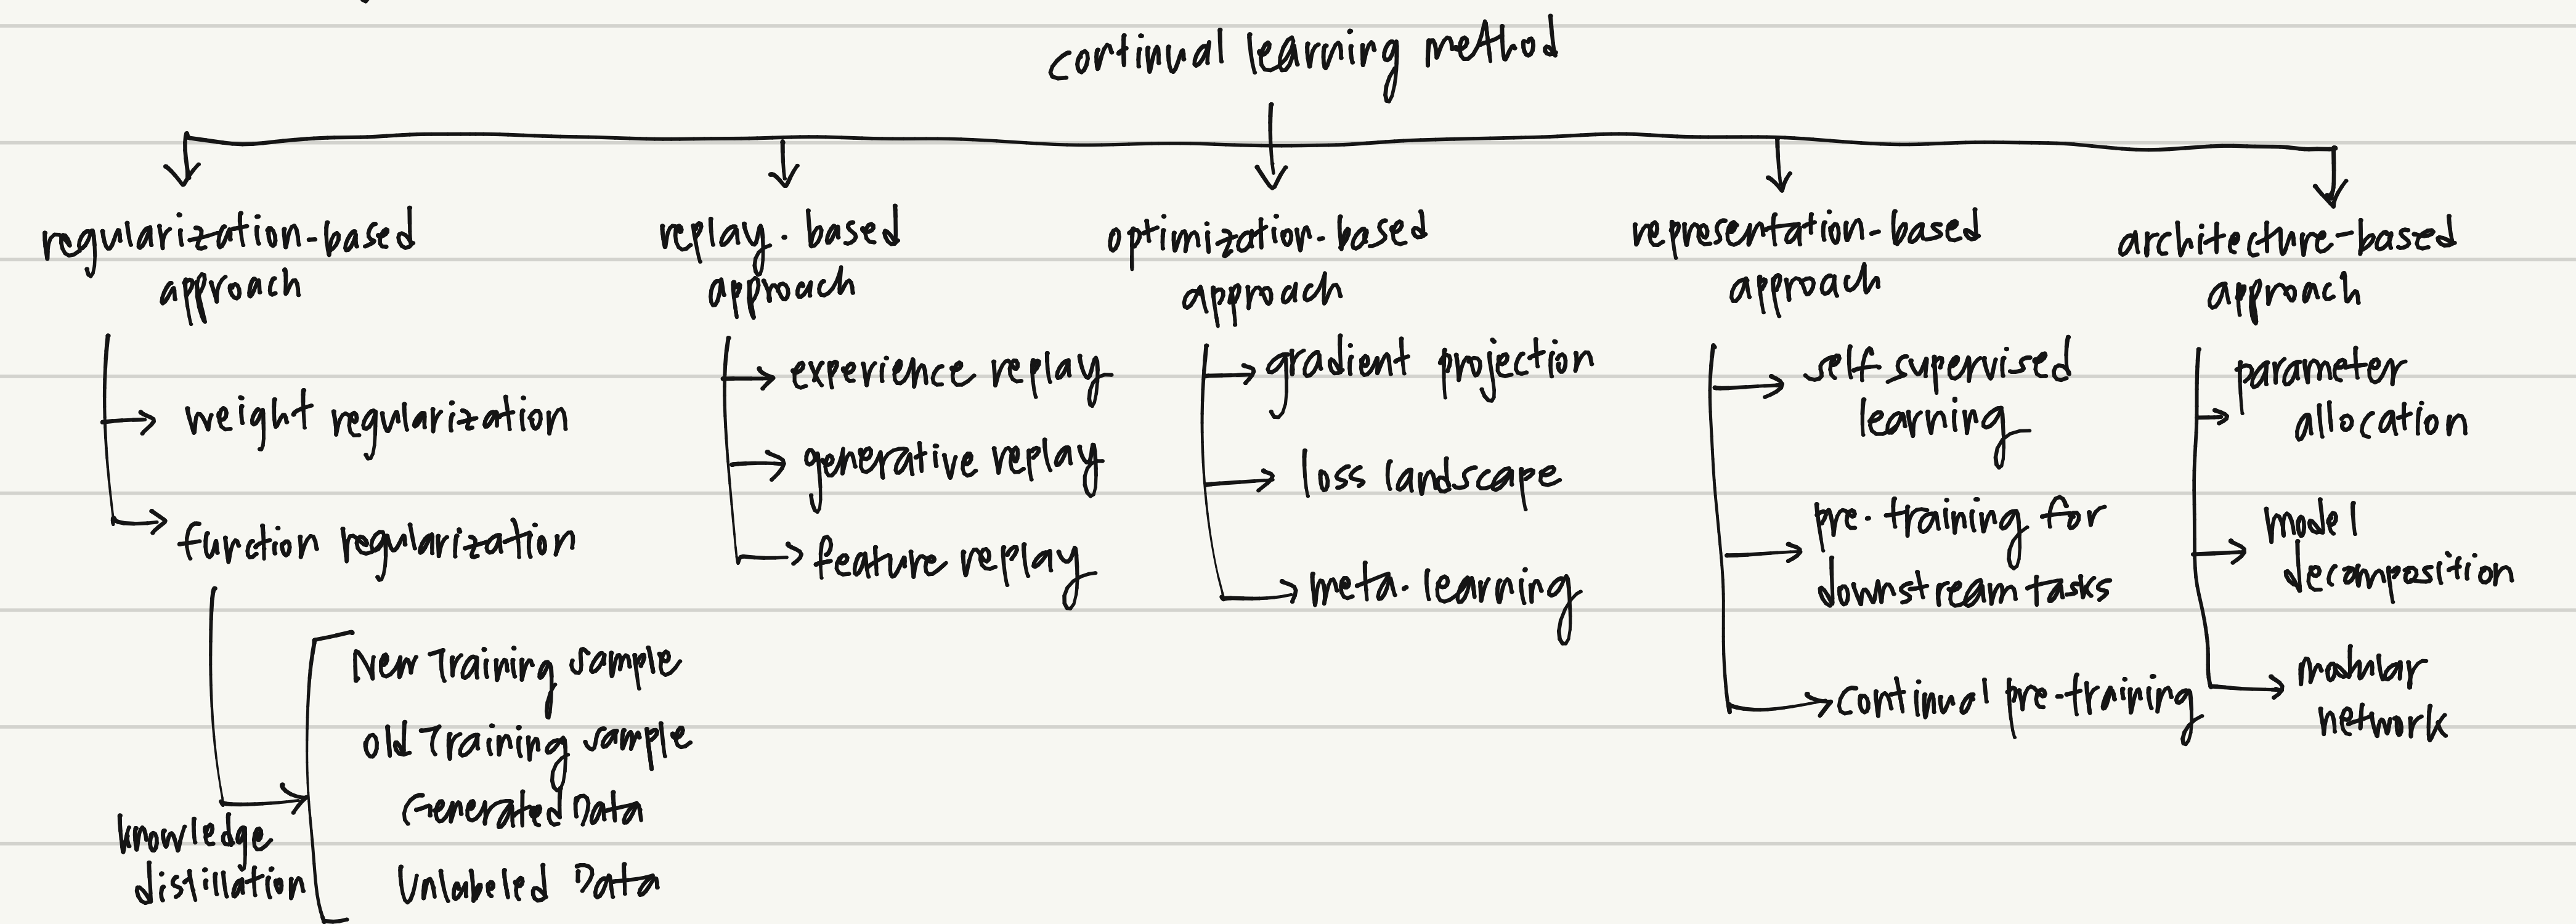 continual learning method
regularization-based
approach
weight regularization
function regularization
knowledge
distillation
New Training sample
old Training sample
Generated Data
Unlabeled Data
replay-based
approach
experience replay
generative replay
feature replay
optimization-based
approach
gradient projection
loss landscape
meta-learning
representation-based
approach
self supervised
learning
pre-training for
downstream tasks
continual pre-training
architecture-based
approach
parameter
allocation
model
decomposition
modular
network